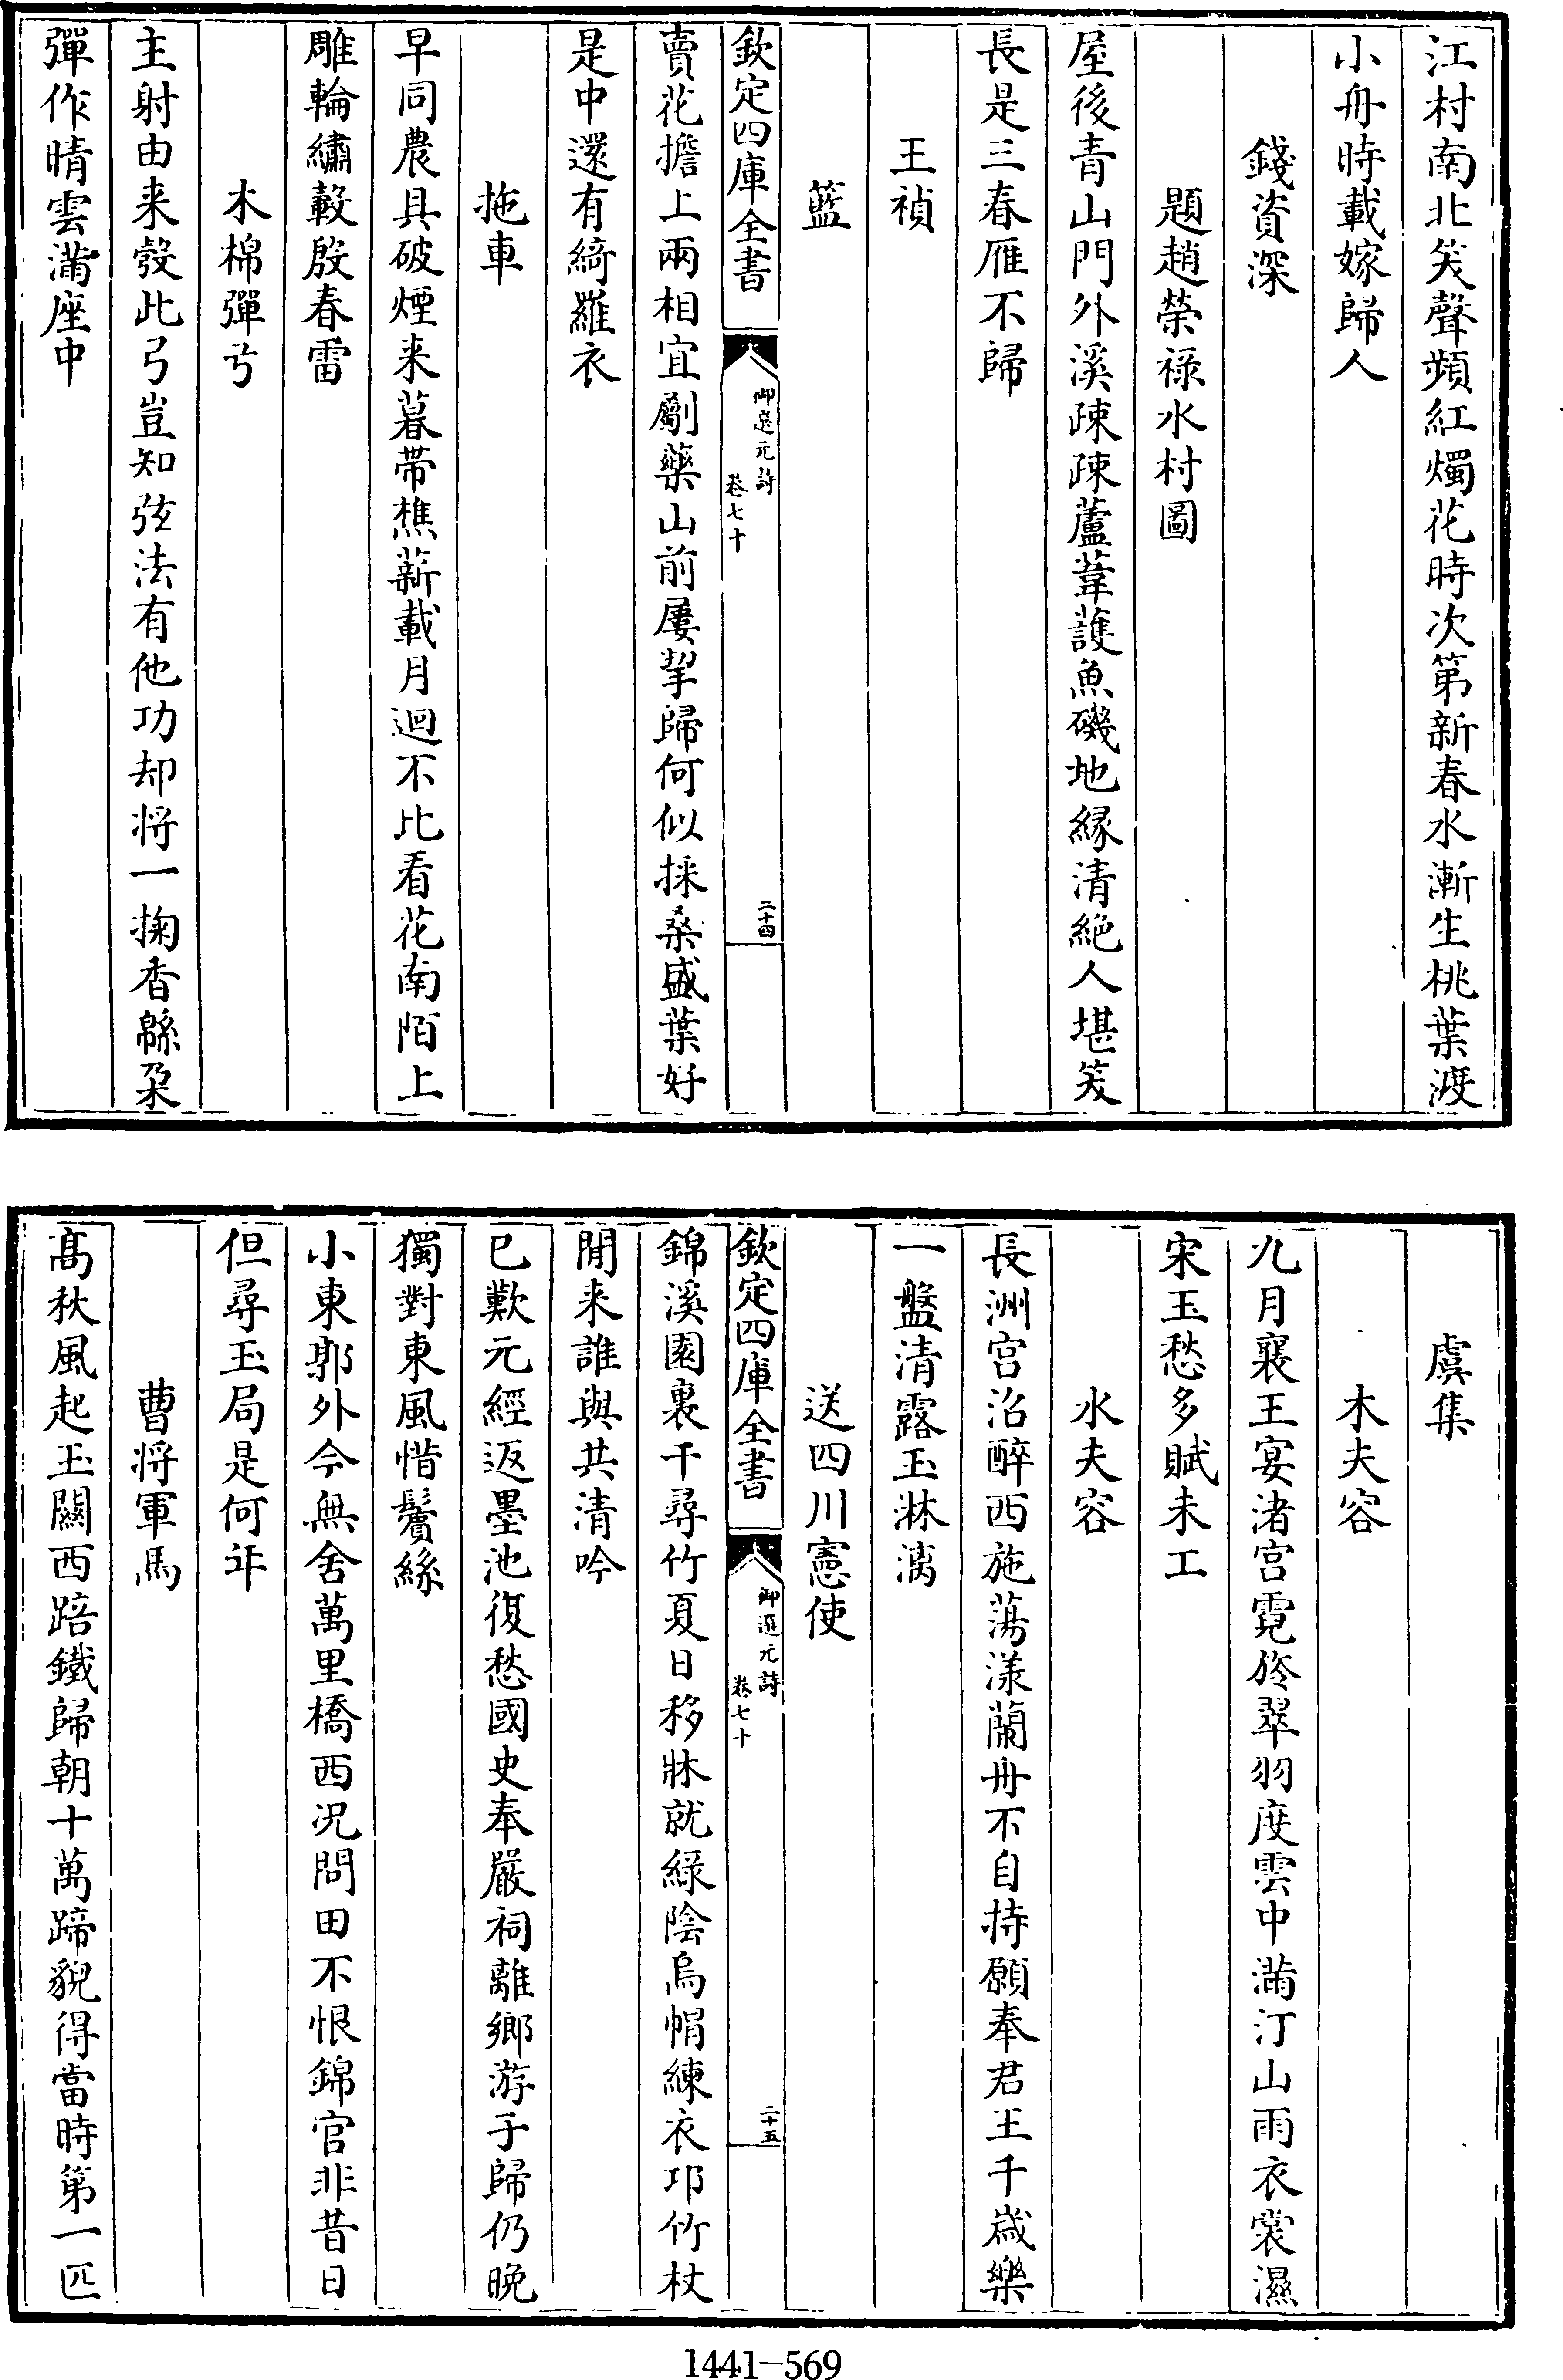 江村南北笑聲頻紅燭花時次第新春水漸生桃葉渡
小舟時載嫁歸人
錢資深
題趙榮祿水村圖
屋後青山門外溪疎疎蘆葦護魚磯地緣清絶人堪笑
長是三春雁不歸
王禎
籃
欽定四庫全書
御選元詩
卷七十
二十四
賣花擔上兩相宜劚藥山前屢挈歸何似採桑盛葉好
是中還有綺羅衣
拖車
早同農具破煙来暮帶樵薪載月迴不比看花南陌上
雕輪繡轂殷春雷
木棉彈弓
主射由来發此弓豈知弦法有他功却将一掬香緜朶
彈作晴雲滿座中
虞集
木夫容
九月襄王宴渚宫霓旍翠羽度雲中滿汀山雨衣裳濕
宋玉愁多賦未工
水夫容
長洲宫沼醉西施蕩漾蘭舟不自持願奉君王千歳樂
一盤清露玉淋漓
送四川憲使
欽定四庫全書
御選元詩
卷七十
二十五
錦溪園裏千尋竹夏日移牀就綠陰烏帽練衣邛竹杖
閒来誰與共清吟
已歎元經返墨池復愁國史奉嚴祠離鄉游子歸仍晚
獨對東風惜鬢絲
小東郭外今無舍萬里橋西况問田不恨錦官非昔日
但尋玉局是何年
曹将軍馬
髙秋風起玉關西踣鐵歸朝十萬蹄貌得當時第一匹
1441-569